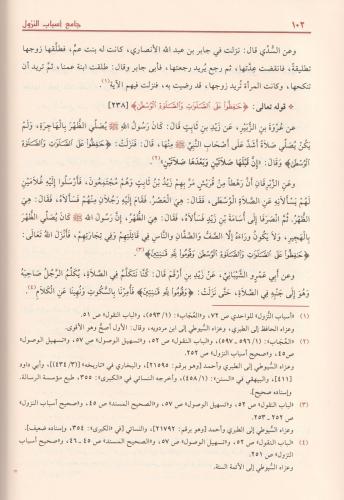 ١٠٢ جامع أسباب النزول
وعن السُّدِّي قال: نزلت في جابر بن عبد الله الأنصاري، كانت له بنت عمٍّ، فطلَّقها زوجها
تطليقةً، فانقضت عِدَّتها، ثم رجع يُريد رجعتها، فأبى جابر وقال: طلقت ابنة عمنا، ثمَّ تريد أن
تنكحها، وكانت المرأة تريد زوجها، قد رضيت به، فنزلت فيهم الآية(١).
قوله تعالى: ﴿حَٰفِظُوا۟ عَلَى ٱلصَّلَوَٰتِ وَٱلصَّلَوٰةِ ٱلْوُسْطَىٰ﴾ [٢٣٨]
عن عُروة بنِ الزُّبَيْرِ، عَن زَيْدِ بنِ ثَابِتٍ قَالَ: كَانَ رَسُولُ اللهِ ﷺ يُصَلِّي الظُّهْرَ بِالْهَاجِرَةِ، وَلَمْ
يَكُنْ يُصَلِّي صَلَاةً أَشَدَّ عَلَى أَصْحَابِ النَّبِيِّ ﷺ مِنْهَا، قَالَ: فَنَزَلَتْ: ﴿حَٰفِظُوا۟ عَلَى ٱلصَّلَوَٰتِ
وَٱلصَّلَوٰةِ ٱلْوُسْطَىٰ﴾ وَقَالَ: «إِنَّ قَبْلَهَا صَلَاتَيْنِ وَبَعْدَهَا صَلَاتَيْنِ»(٢).
وعَنِ الزِّبْرِقَانِ أَنَّ رَهْطاً مِنْ قُرَيْشٍ مَرَّ بِهِمْ زَيْدُ بْنُ ثَابِتٍ وَهُمْ مُجْتَمِعُونَ، فَأَرْسَلُوا إِلَيْهِ غُلَامَيْنِ
لَهُمْ يَسْأَلَانِهِ عَنِ الصَّلَاةِ الْوُسْطَى، فَقَالَ: هِيَ الْعَصْرُ، فَقَامَ إِلَيْهِ رَجُلَانِ مِنْهُمْ فَسَأَلَاهُ، فَقَالَ: هِيَ
الظُّهْرُ، ثُمَّ انْصَرَفَا إِلَى أُسَامَةَ بْنِ زَيْدٍ فَسَأَلَاهُ، فَقَالَ: هِيَ الظُّهْرُ، إِنَّ رَسُولَ اللهِ ﷺ كَانَ يُصَلِّي الظُّهْرَ
بِالْهَجِيرِ، وَلَا يَكُونُ وَرَاءَهُ إِلَّا الصَّفُّ وَالصَّفَّانِ وَالنَّاسُ فِي قَائِلَتِهِمْ وَفِي تِجَارَتِهِمْ، فَأَنْزَلَ اللهُ تَعَالَى:
﴿حَٰفِظُوا۟ عَلَى ٱلصَّلَوَٰتِ وَٱلصَّلَوٰةِ ٱلْوُسْطَىٰ وَقُومُوا۟ لِلَّهِ قَٰنِتِينَ﴾(٣).
عَن أَبِي عَمْرٍو الشَّيْبَانِيِّ، عَن زَيْدِ بْنِ أَرْقَمَ قَالَ: كُنَّا نَتَكَلَّمُ فِي الصَّلَاةِ، يُكَلِّمُ الرَّجُلُ صَاحِبَهُ
وَهُوَ إِلَى جَنْبِهِ فِي الصَّلَاةِ، حَتَّى نَزَلَتْ: ﴿وَقُومُوا۟ لِلَّهِ قَٰنِتِينَ﴾ فَأُمِرْنَا بِالسُّكُوتِ وَنُهِينَا عَنِ الْكَلَامِ(٤).
(١) «أسباب النزول» للواحدي ص ٧٢، و«العُجاب» (١/ ٥٩٣)، و«الباب النقول» ص ٥١.
وعزاه الحافظ إلى الطبري، وعزاه السُّيوطي إلى ابن مردويه، وقال: الأول أصحُّ وهو الأقوى.
(٢) «العُجاب»: (١/ ٥٩٦، ٥٩٧)، و«الباب النقول» ص ٥٢، و«تسهيل الوصول» ص ٥٧، و«الصحيح المسند»
ص ٤٥، و«صحيح أسباب النزول» ص ٢٥٢.
وعزاه السُّيوطي إلى الطبري وأحمد [وهو برقم: ٢١٥٩٥]، والبخاري في «تاريخه» [(٣/ ٤٣٤)]، وأبي داود
[٤١١]، والبيهقي في «السنن» [(١/ ٤٥٨)]، وأخرجه النسائي في «الكبرى»: ٣٥٥، طبع مؤسسة الرسالة.
وإسناده صحيح].
(٣) «الباب النقول» ص ٥٢، و«تسهيل الوصول» ص ٥٧، و«الصحيح المسند» ص ٤٥، و«صحيح أسباب النزول»
ص ٢٥٢ ـ ٢٥٣.
وعزاه السُّيوطي إلى أحمد [وهو برقم: ٢١٧٩٢]، والنسائي [في «الكبرى»: ٣٥٤، وإسناده ضعيف].
(٤) «الباب النقول» ص ٥٢، و«تسهيل الوصول» ص ٥٧، و«الصحيح المسند» ص ٤٥ ـ ٤٦، و«صحيح أسباب
النزول» ص ٢٥١.
وعزاه السُّيوطي إلى الأئمة الستة.